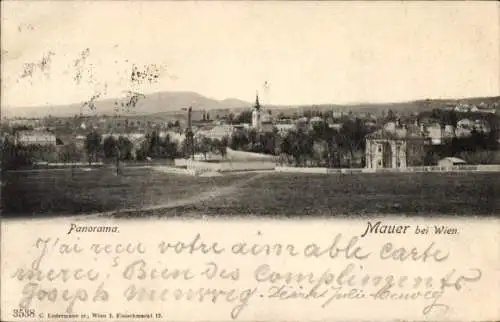 Panorama. Mauer bei Wien.
J'ai reçu votre aimable carte
merci. Bien des Compliments
Joseph
3538 C. Ledermann jr., Wien I. Fleischmarkt 12.